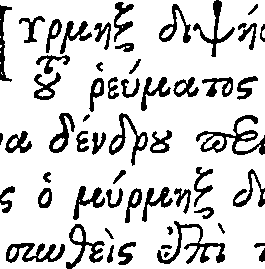 Πυρμηξ διψή
τοῦ ῥεύματος
α δένδρου πε
ς ὁ μύρμηξ δι
σωθεὶς ἐπὶ τ